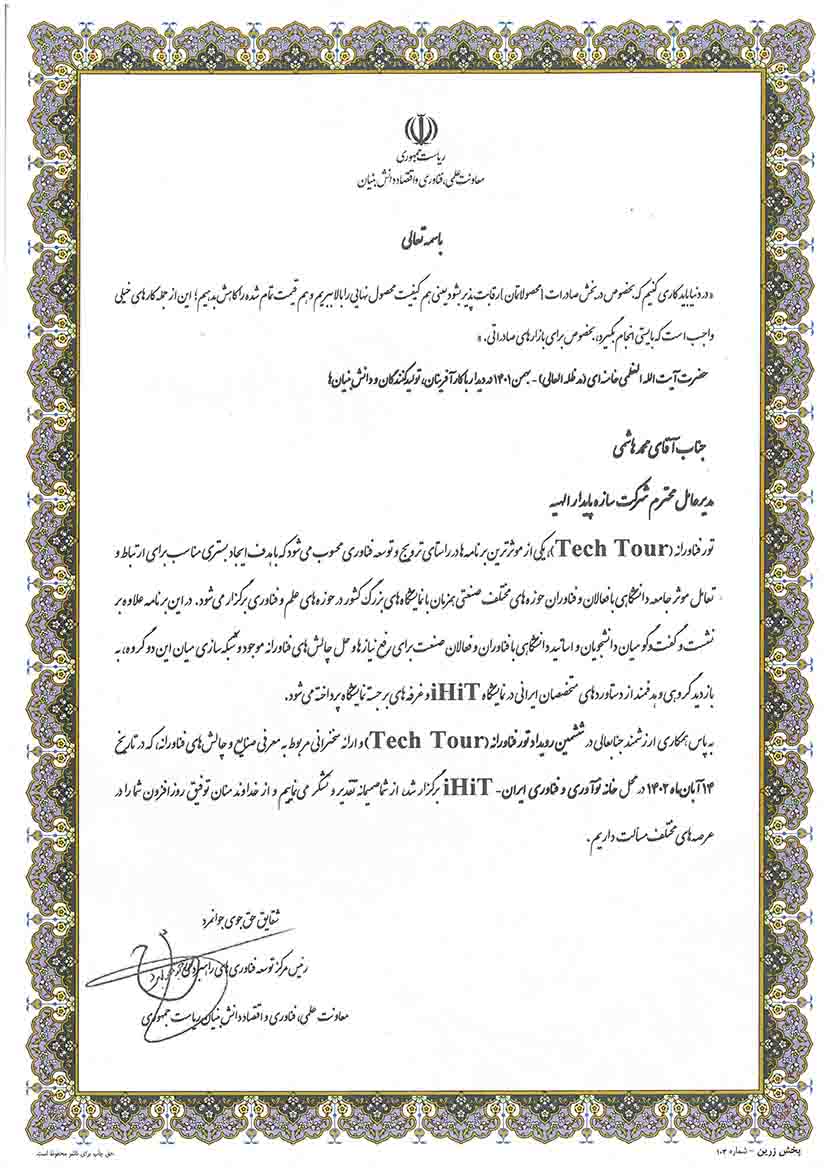 ریاست جمهوری
معاونت علمی، فناوری و اقتصاد دانش بنیان
باسمه تعالی
« در دنیا باید کاری کنیم که بخصوص در بخش صادرات [محصولاتمان] رقابت پذیر بشود یعنی هم کیفیت محصول نهایی را بالا ببریم و هم قیمت تمام شده را کاهش بدهیم؛ این از جمله کارهای خیلی
واجب است که بایستی انجام بگیرد، بخصوص برای بازارهای صادراتی. »
حضرت آیت الله العظمی خامنه ای (مد ظله العالی) - بهمن ۱۴۰۱ در دیدار با کارآفرینان، تولیدکنندگان و دانش بنیان ها
جناب آقای محمد هاشمی
مدیرعامل محترم شرکت سازه پایدار الهیه
تور فناورانه (Tech Tour)، یکی از موثرترین برنامه ها در راستای ترویج و توسعه فناوری محسوب می شود که با هدف ایجاد بستری مناسب برای ارتباط و
تعامل موثر جامعه دانشگاهی با فعالان و فناوران حوزه های مختلف صنعتی همزمان با نمایشگاه های بزرگ کشور در حوزه های علم و فناوری برگزار می شود. در این برنامه علاوه بر
نشست و گفت و گو میان دانشجویان و اساتید دانشگاهی با فناوران و فعالان صنعت برای رفع نیازها و حل چالش های فناورانه موجود و شبکه سازی میان این دو گروه، به
بازدید گروهی و هدفمند از دستاوردهای متخصصان ایرانی در نمایشگاه iHiT و غرفه های برجسته نمایشگاه پرداخته می شود.
به پاس همکاری ارزشمند جنابعالی در ششمین رویداد تور فناورانه (Tech Tour) و ارائه سخنرانی مربوط به معرفی صنایع و چالش های فناورانه، که در تاریخ
۱۴ آبان ماه ۱۴۰۲ در محل خانه نوآوری و فناوری ایران - iHiT برگزار شد، از شما صمیمانه تقدیر و تشکر می نماییم و از خداوند منان توفیق روز افزون شما را در
عرصه های مختلف مسألت داریم.
شقایق حق جوی جوانمرد
رئیس مرکز توسعه فناوری های راهبردی
معاونت علمی، فناوری و اقتصاد دانش بنیان ریاست جمهوری
پخش زرین - شماره ۱۰۲
حق چاپ برای ناشر محفوظ است.